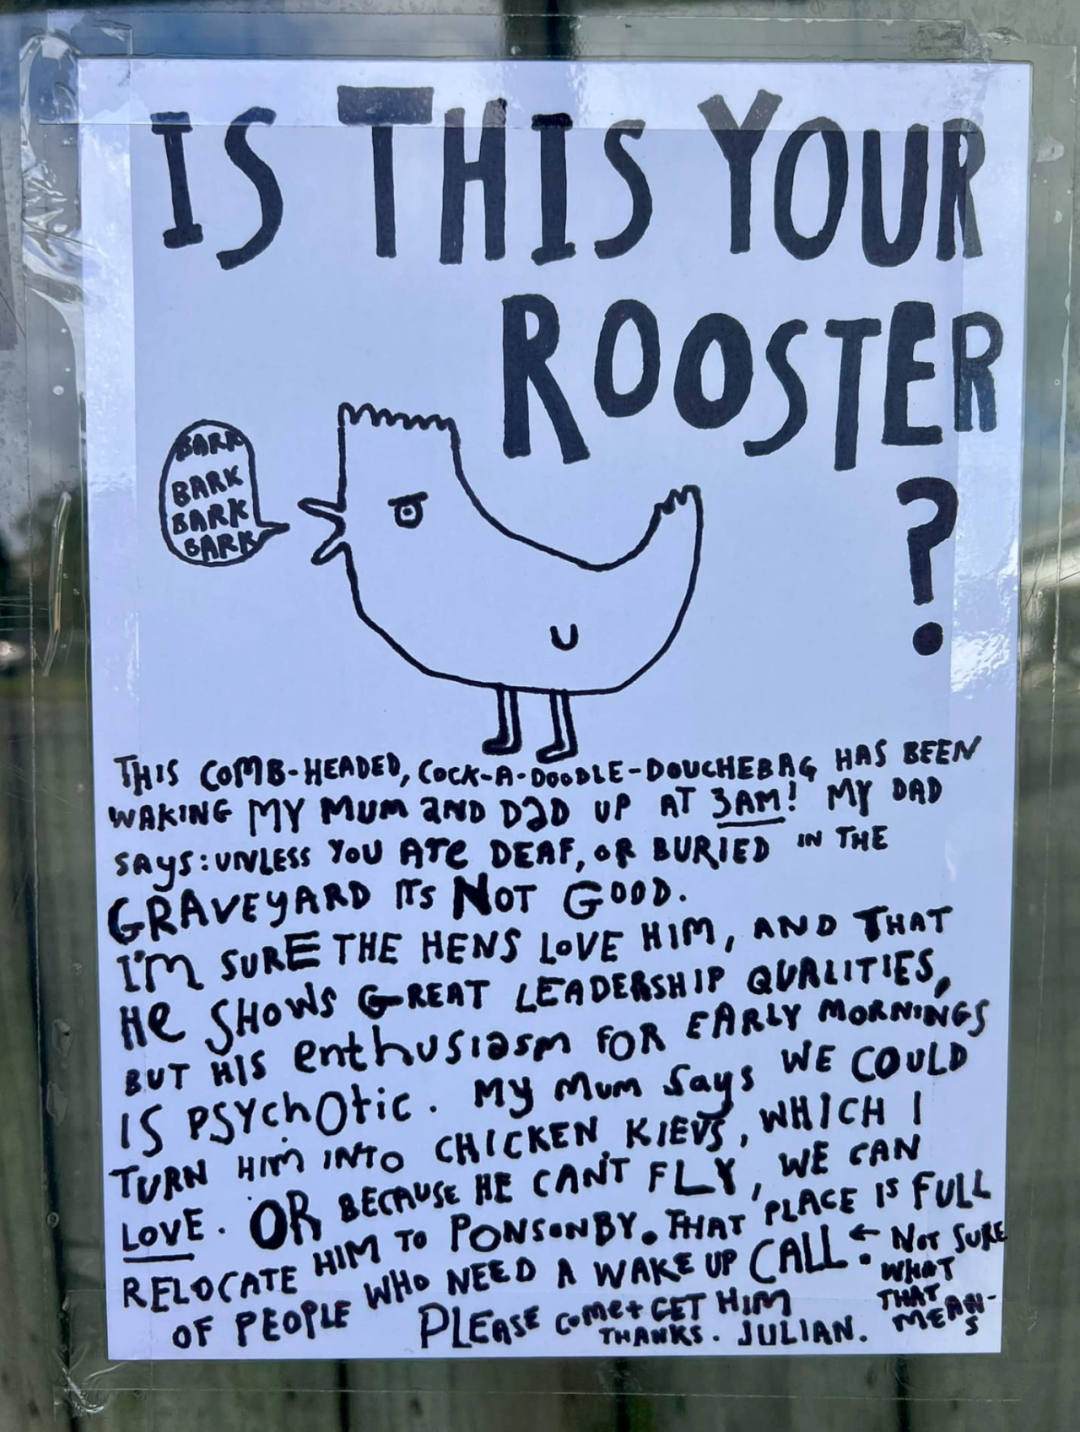 IS THIS YOUR
ROOSTER
?
BARK
BARK
BARK
BARK
THIS COMB-HEADED, COCK-A-DOODLE-DOUCHEBAG HAS BEEN
WAKING MY MUM AND DAD UP AT 3AM! MY DAD
SAYS: UNLESS YOU ARE DEAF, OR BURIED IN THE
GRAVEYARD ITS NOT GOOD.
I'M SURE THE HENS LOVE HIM, AND THAT
He SHOWS GREAT LEADERSHIP QUALITIES,
BUT HIS enthusiasm FOR EARLY MORNINGS
IS PSYchOtic. My Mum Says WE COULD
TURN HIM INTO CHICKEN KIEVS, WHICH I
LOVE. OR BECAUSE HE CAN'T FLY, WE CAN
RELOCATE HIM TO PONSONBY. THAT PLACE IS FULL
OF PEOPLE WHO NEED A WAKE UP CALL. ← NOT SURE
WHAT
THAT
MEAN-
S
PLEASE come + GET HIM
THANKS. JULIAN.